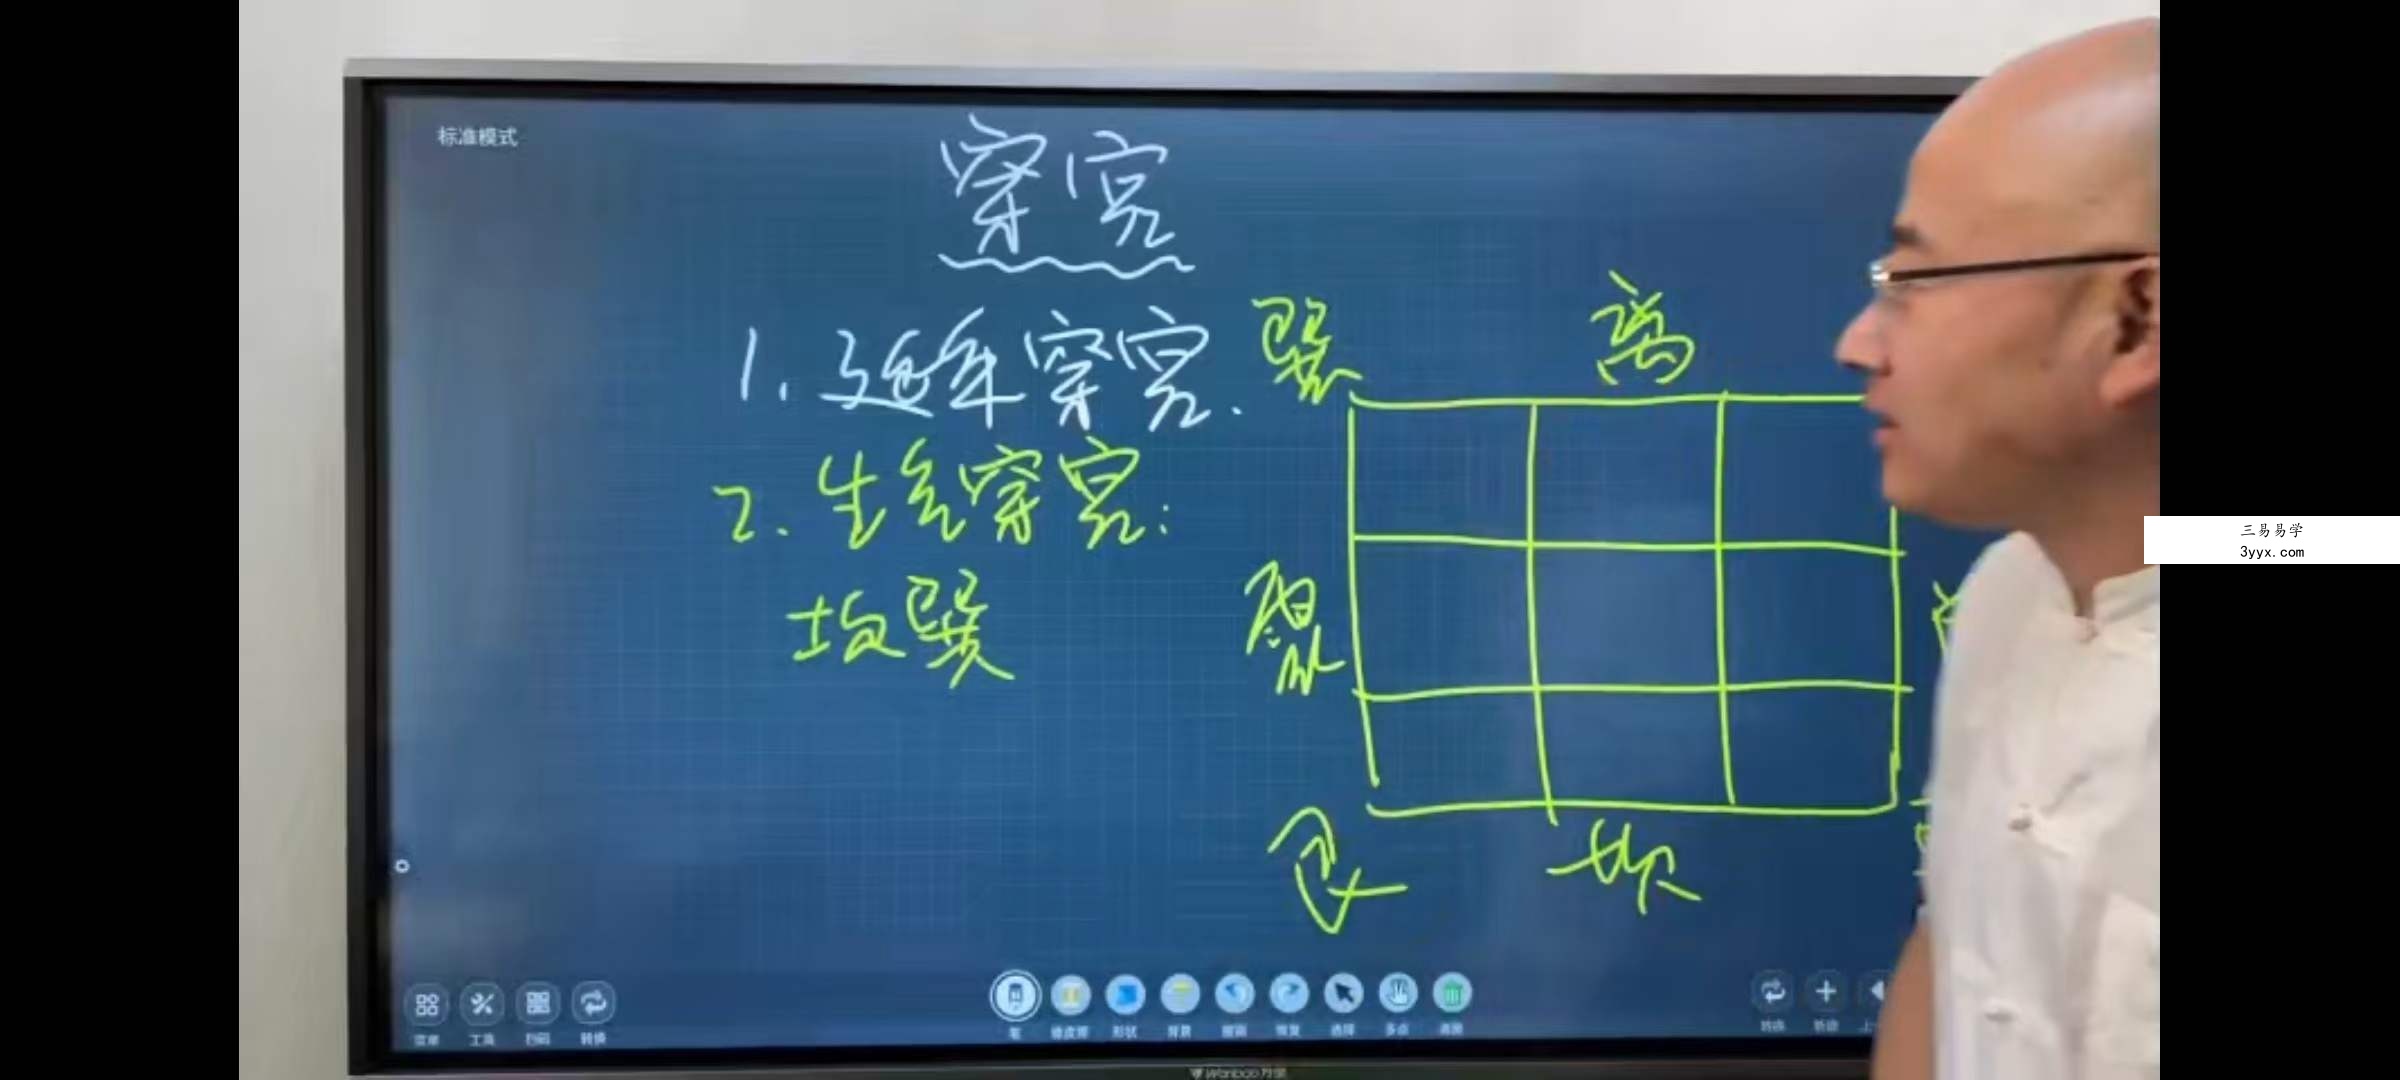 标准模式
穿宫
1. 延年穿宫.
2. 生气穿宫:
坎巽
巽
离
震
艮
坎
三易易学
3yyx.com
菜单
工具
扫码
转换
笔
橡皮擦
形状
背景
撤销
恢复
选择
多点
清屏
转换
新建